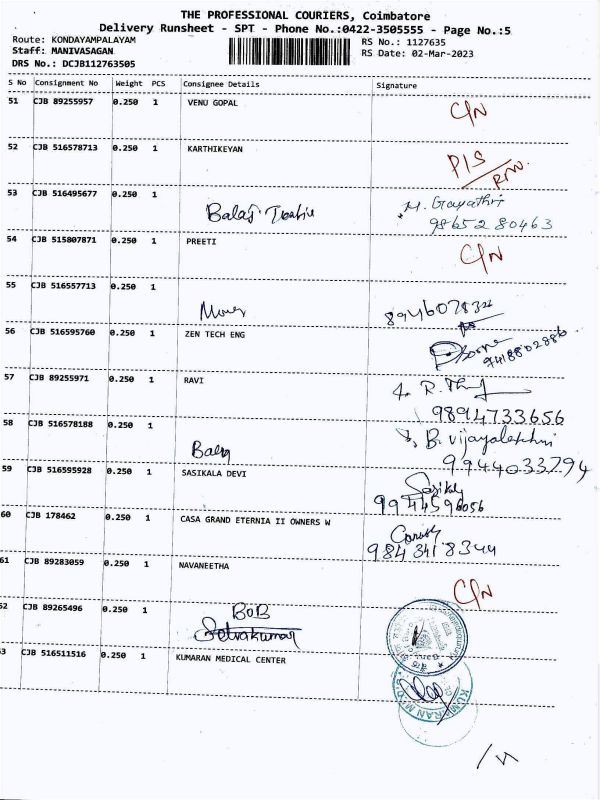 THE PROFESSIONAL COURIERS, Coimbatore
Delivery Runsheet - SPT - Phone No.:0422-3505555 - Page No.:5
Route: KONDAYAMPALAYAM RS No.: 1127635
Staff: MANIVASAGAN RS Date: 02-Mar-2023
DRS No.: DCJB112763505
S No Consignment No Weight PCS Consignee Details Signature
51 CJB 89255957 0.250 1 VENU GOPAL C/N
52 CJB 516578713 0.250 1 KARTHIKEYAN P/S
53 CJB 516495677 0.250 1 M. Gayathri
9865280463
54 CJB 515807871 0.250 1 PREETI C/N
55 CJB 516557713 0.250 1
56 CJB 516595760 0.250 1 ZEN TECH ENG
57 CJB 89255971 0.250 1 RAVI
9894733656
58 CJB 516578188 0.250 1 B. Vijayalakshmi
9944033794
59 CJB 516595928 0.250 1 SASIKALA DEVI
60 CJB 178462 0.250 1 CASA GRAND ETERNIA II OWNERS W
61 CJB 89283059 0.250 1 NAVANEETHA C/N
52 CJB 89265496 0.250 1 BOB
Selvakumar
3 CJB 516511516 0.250 1 KUMARAN MEDICAL CENTER